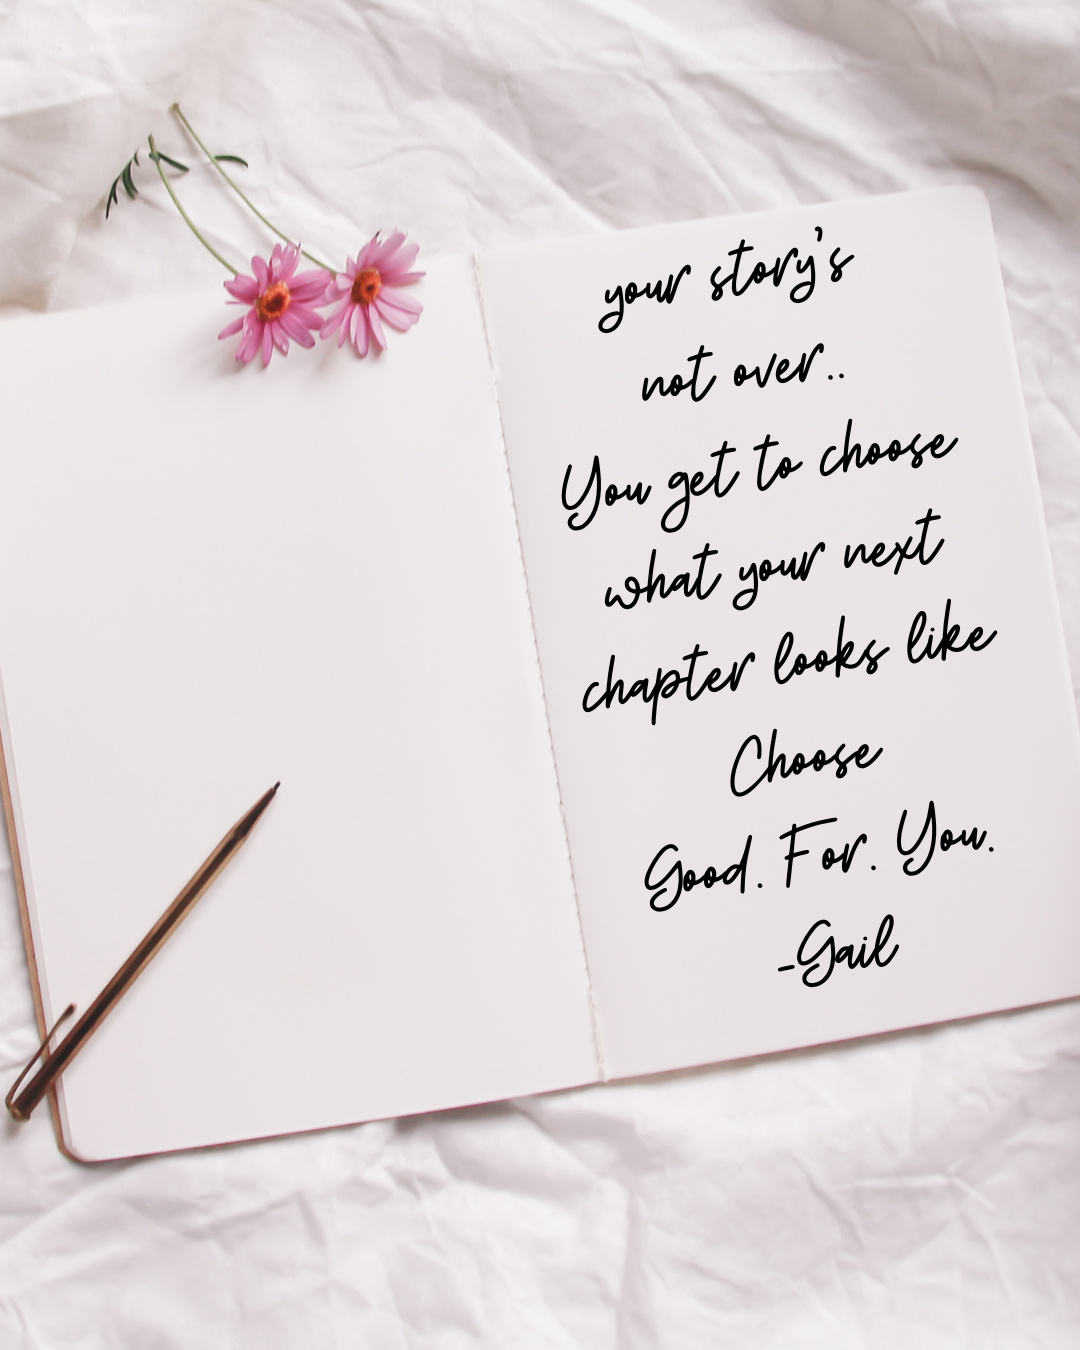 your story's
not over..
You get to choose
what your next
chapter looks like
Choose
Good. For. You.
-Gail